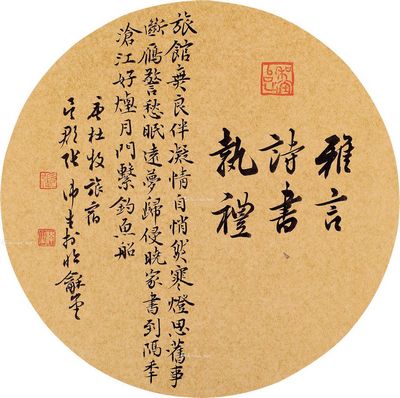 雅言
詩書
執禮
旅館無良伴凝情自悄然寒燈思舊事
斷鴈警愁眠遠夢歸侵曉家書到隔年
滄江好煙月門繫釣魚船
杜牧旅宿